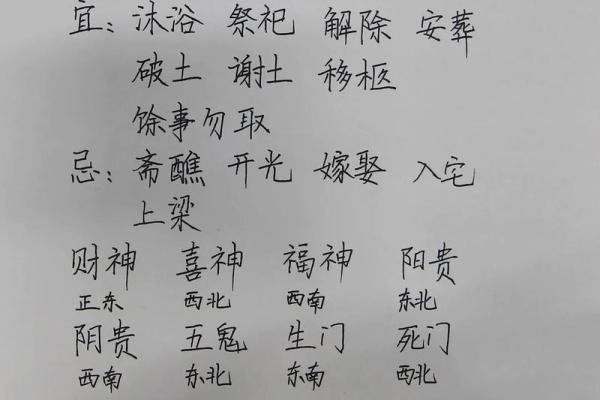 宜: 沐浴 祭祀 解除 安葬
破土 谢土 移柩
馀事勿取
忌: 斋醮 开光 嫁娶 入宅
上梁
财神 喜神 福神 阳贵
正东 西北 西南 东北
阴贵 五鬼 生门 死门
西南 东北 东南 西北